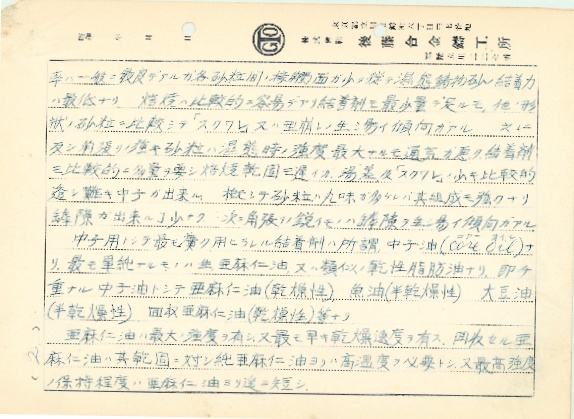 昭 年 月 日
GTO
株式會社 後藤合金鑄工所
率ハ一般ニ最良デアルガ各砂粒間ノ接觸面ガ小ク從テ濕態鑄物砂ノ結着力
ハ最低ナリ 焙焼ハ比較的ニ容易デアリ結着剤モ最少量デ足ルモ、他ノ形
狀ノ砂粒ニ比較シテ「スクワレ」又ハ亜裂ノ生ジ易イ傾向ガアル 次ニ
及シ角張リ強キ砂粒ハ濕態時ノ強度最大ナルモ通気ガ悪ク結着剤
モ比較的ニ多量ヲ要シ焙焼乾固ニ遅イガ、湯差及「スクワレ」ノ少キ比較的
造リ難キ中子ガ出来ル 概シテ砂粒ハ丸味ガ多ケレバ其組成モ強クナリ
罅隙ガ出来ル丁少ナク 次ニ角張リノ鋭イモノハ罅隙ヲ生ジ易イ傾向ガアル
中子用トシテ最モ廣ク用ヒラルル結着剤ハ所謂中子油(core oil)ナ
リ、最モ單純ナルモノハ生亜麻仁油、又ハ類似ノ乾性脂肪油ナリ、即チ
重ナル中子油トシテ亜麻仁油(乾燥性) 魚油(半乾燥性) 大豆油
(半乾燥性) 回収亜麻仁油(乾燥性)等ナリ
亜麻仁油ハ最大強度ヲ有シ又最モ早キ乾燥速度ヲ有ス、回收セル亜
麻仁油ハ其乾固ニ対シ純亜麻仁油ヨリハ高温度ヲ必要トシ、又最高強度
ノ保持程度ハ亜麻仁油ヨリ遥ニ短シ
(2)